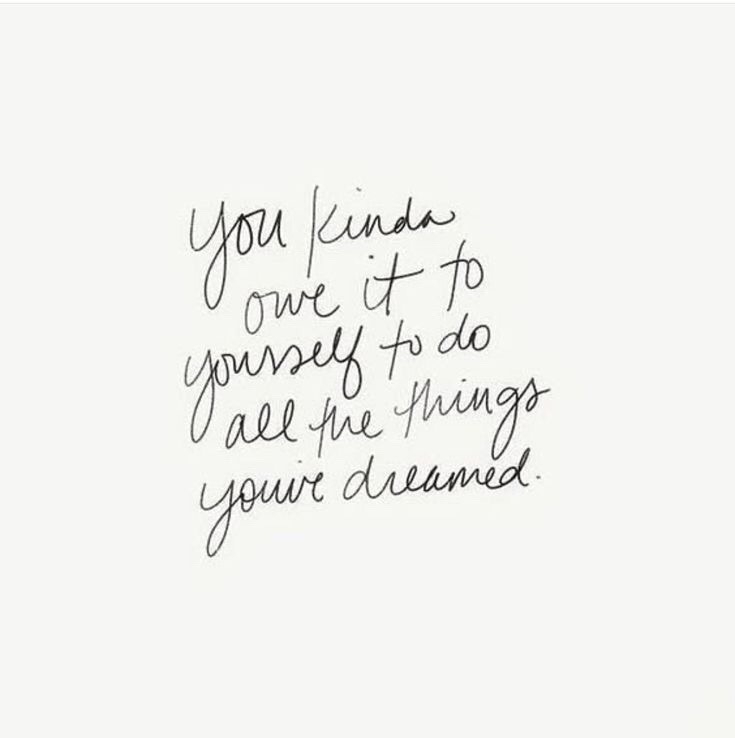 You kinda
owe it to
yourself to do
all the things
you've dreamed.